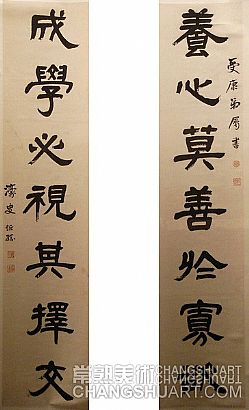 養心莫善於寡欲
受康弟屬書
成學必視其擇交
常熟美術CHANGSHUART
CHANGSHUART.COM